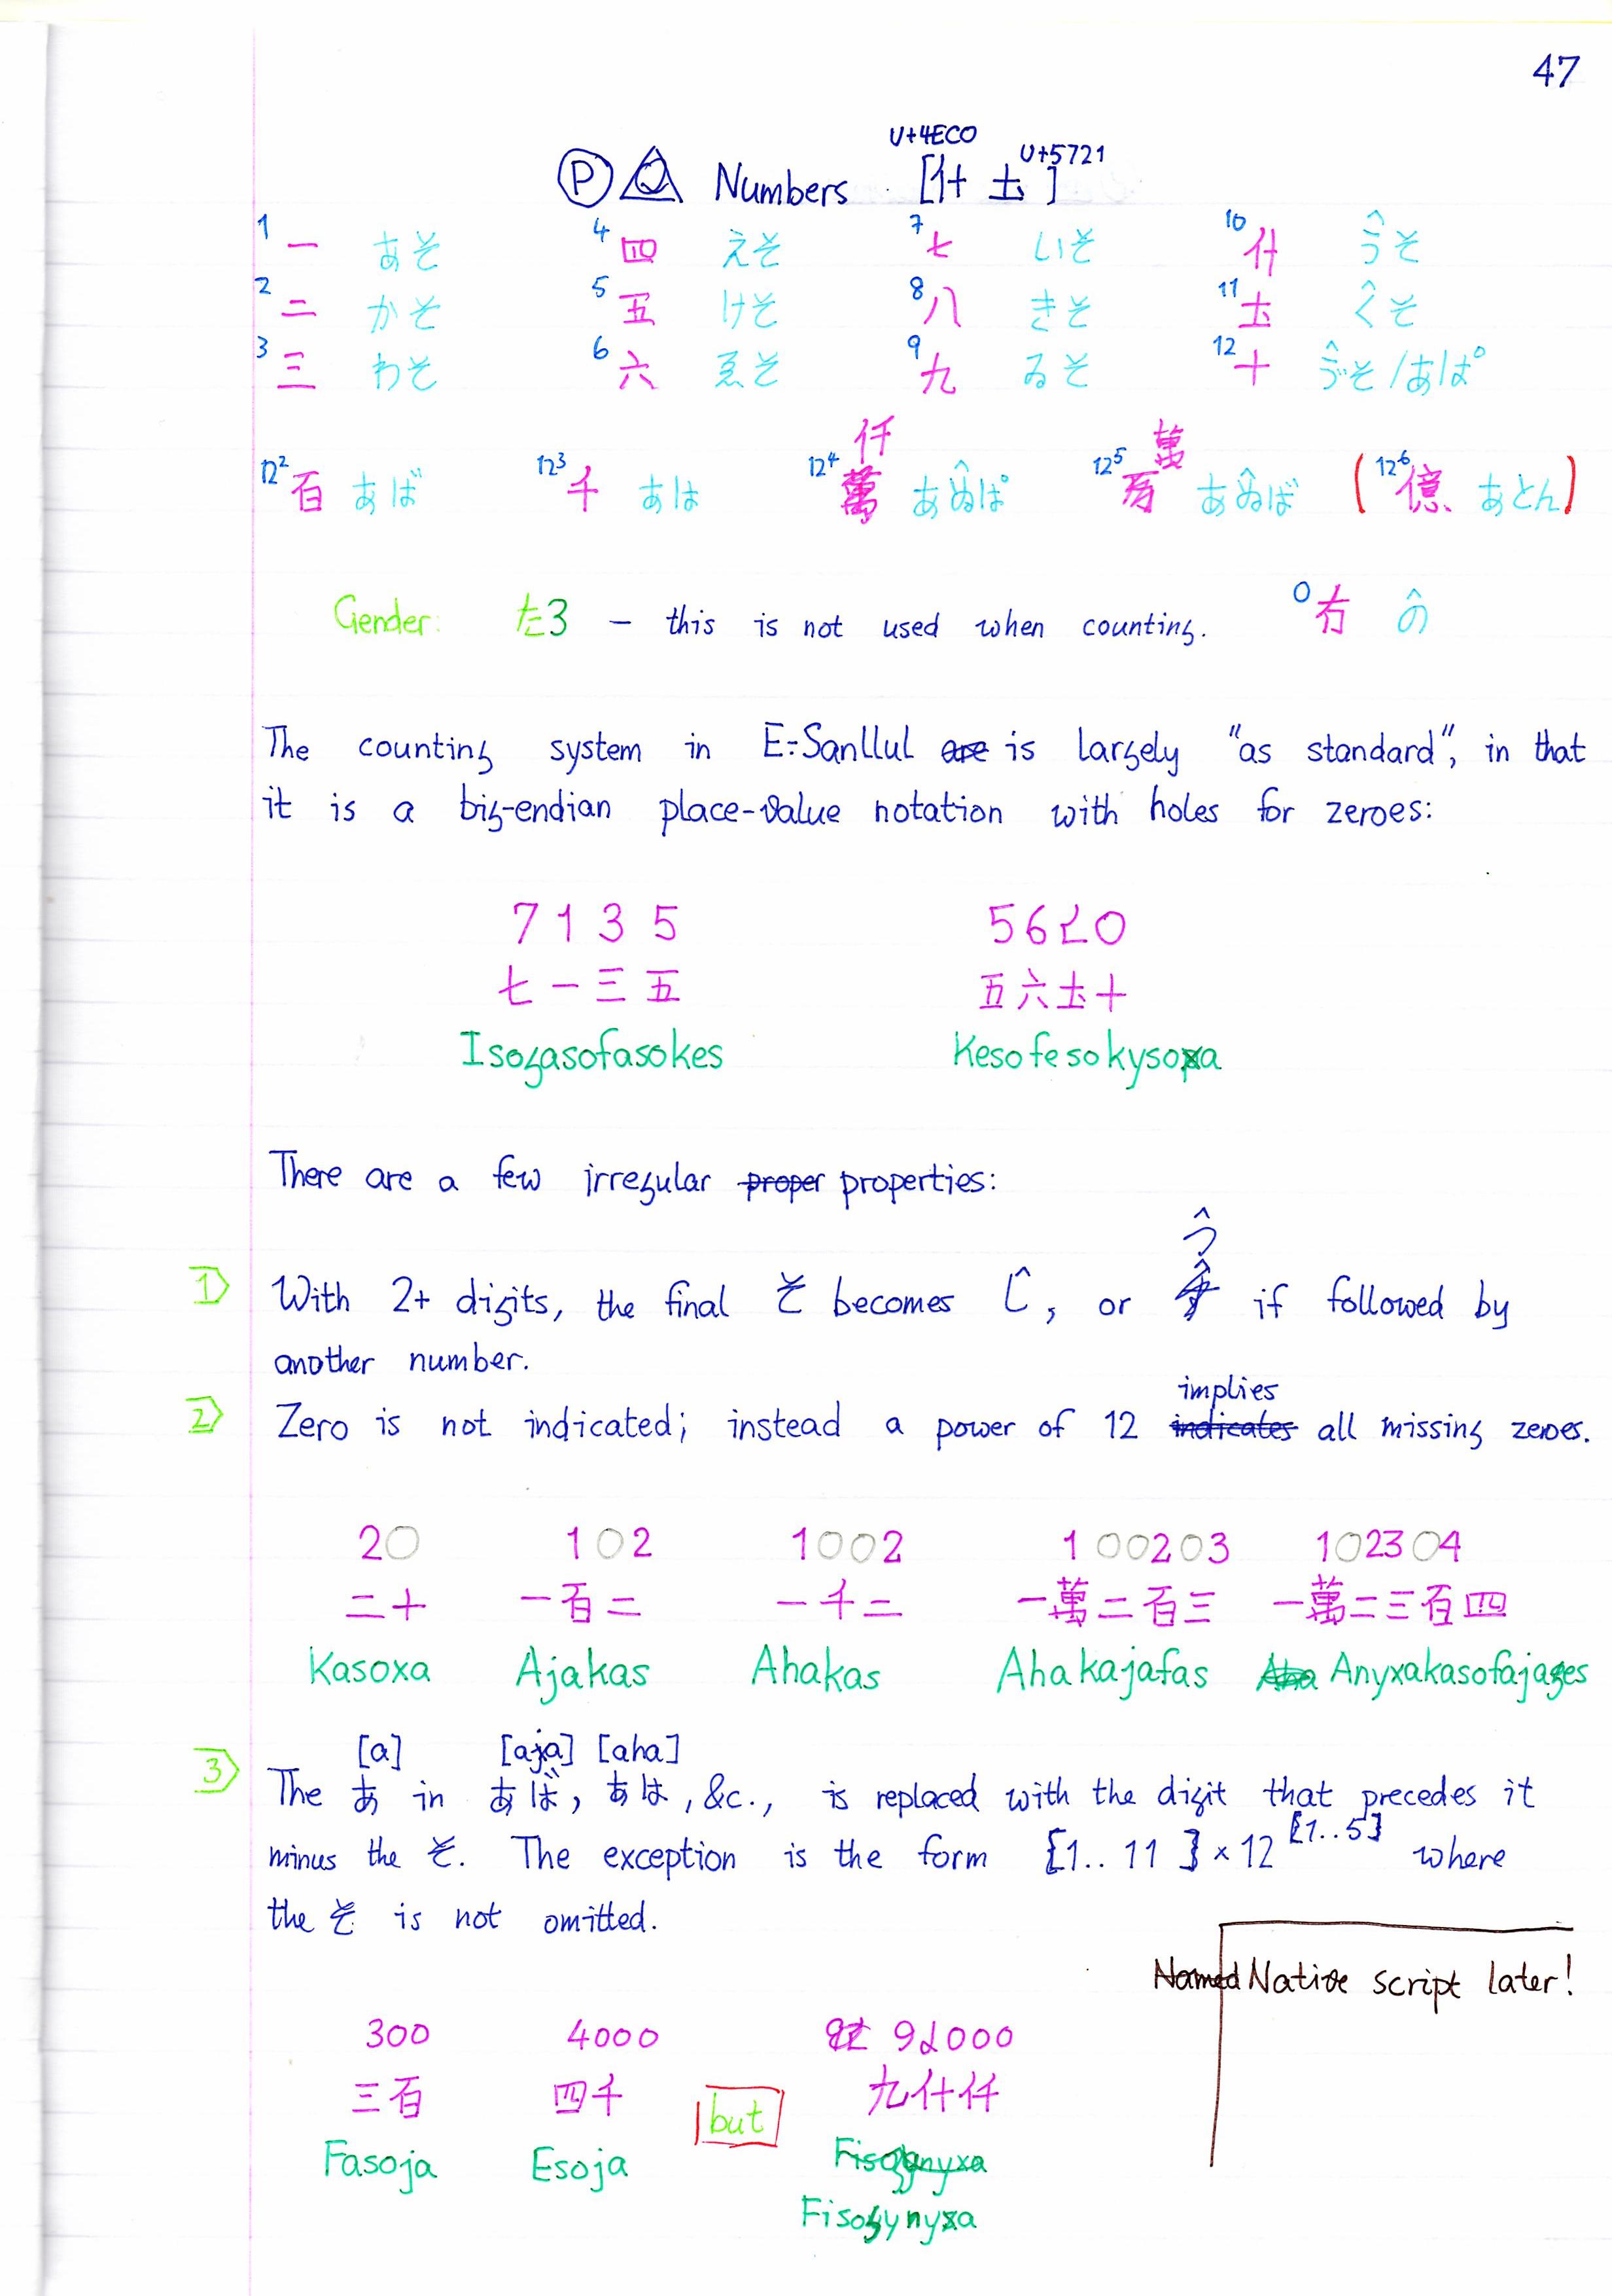 47
U+4EC0 U+5721
P Numbers [什 圡]
1 一 あそ 4 四 えそ 7 七 しいそ 10 什 う̂そ
2 二 かそ 5 五 けそ 8 八 きそ 11 圡 く̂そ
3 三 わそ 6 六 ゑそ 9 九 ゐそ 12 十 ゔ̂そ/あぱ
仟 萬
12² 百 あば 12³ 千 あは 12⁴ 萬 あゐ̂ぱ 12⁵ 万 あゐ̂ば (12⁶ 億 あとん)
Gender: た3 – this is not used when counting. 0 冇 の̂
The counting system in E:Sanllul are is largely "as standard", in that
it is a big-endian place-value notation with holes for zeroes:
7135 56ՀO
七一三五 五六圡十
Isogasofasokes Kesofesokysoxa
There are a few irregular proper properties:
う̂
1 With 2+ digits, the final そ becomes , or if followed by
another number.
implies
2 Zero is not indicated; instead a power of 12 indicates all missing zeroes.
20 102 1002 100203 102304
二十 一百二 一千二 一萬二百三 一萬二三百四
Kasoxa Ajakas Ahakas Ahakajafas Aha Anyxakasofajages
[a] [aja] [aha]
3 The あ in あば, あは, &c., is replaced with the digit that precedes it
minus the そ. The exception is the form [1..11] × 12^[1..5] where
the そ is not omitted.
Named Native script later!
300 4000 9 9d000
三百 四千 but 九什仟
Fasoja Esoja Fisogynyxa
Fisogynyxa